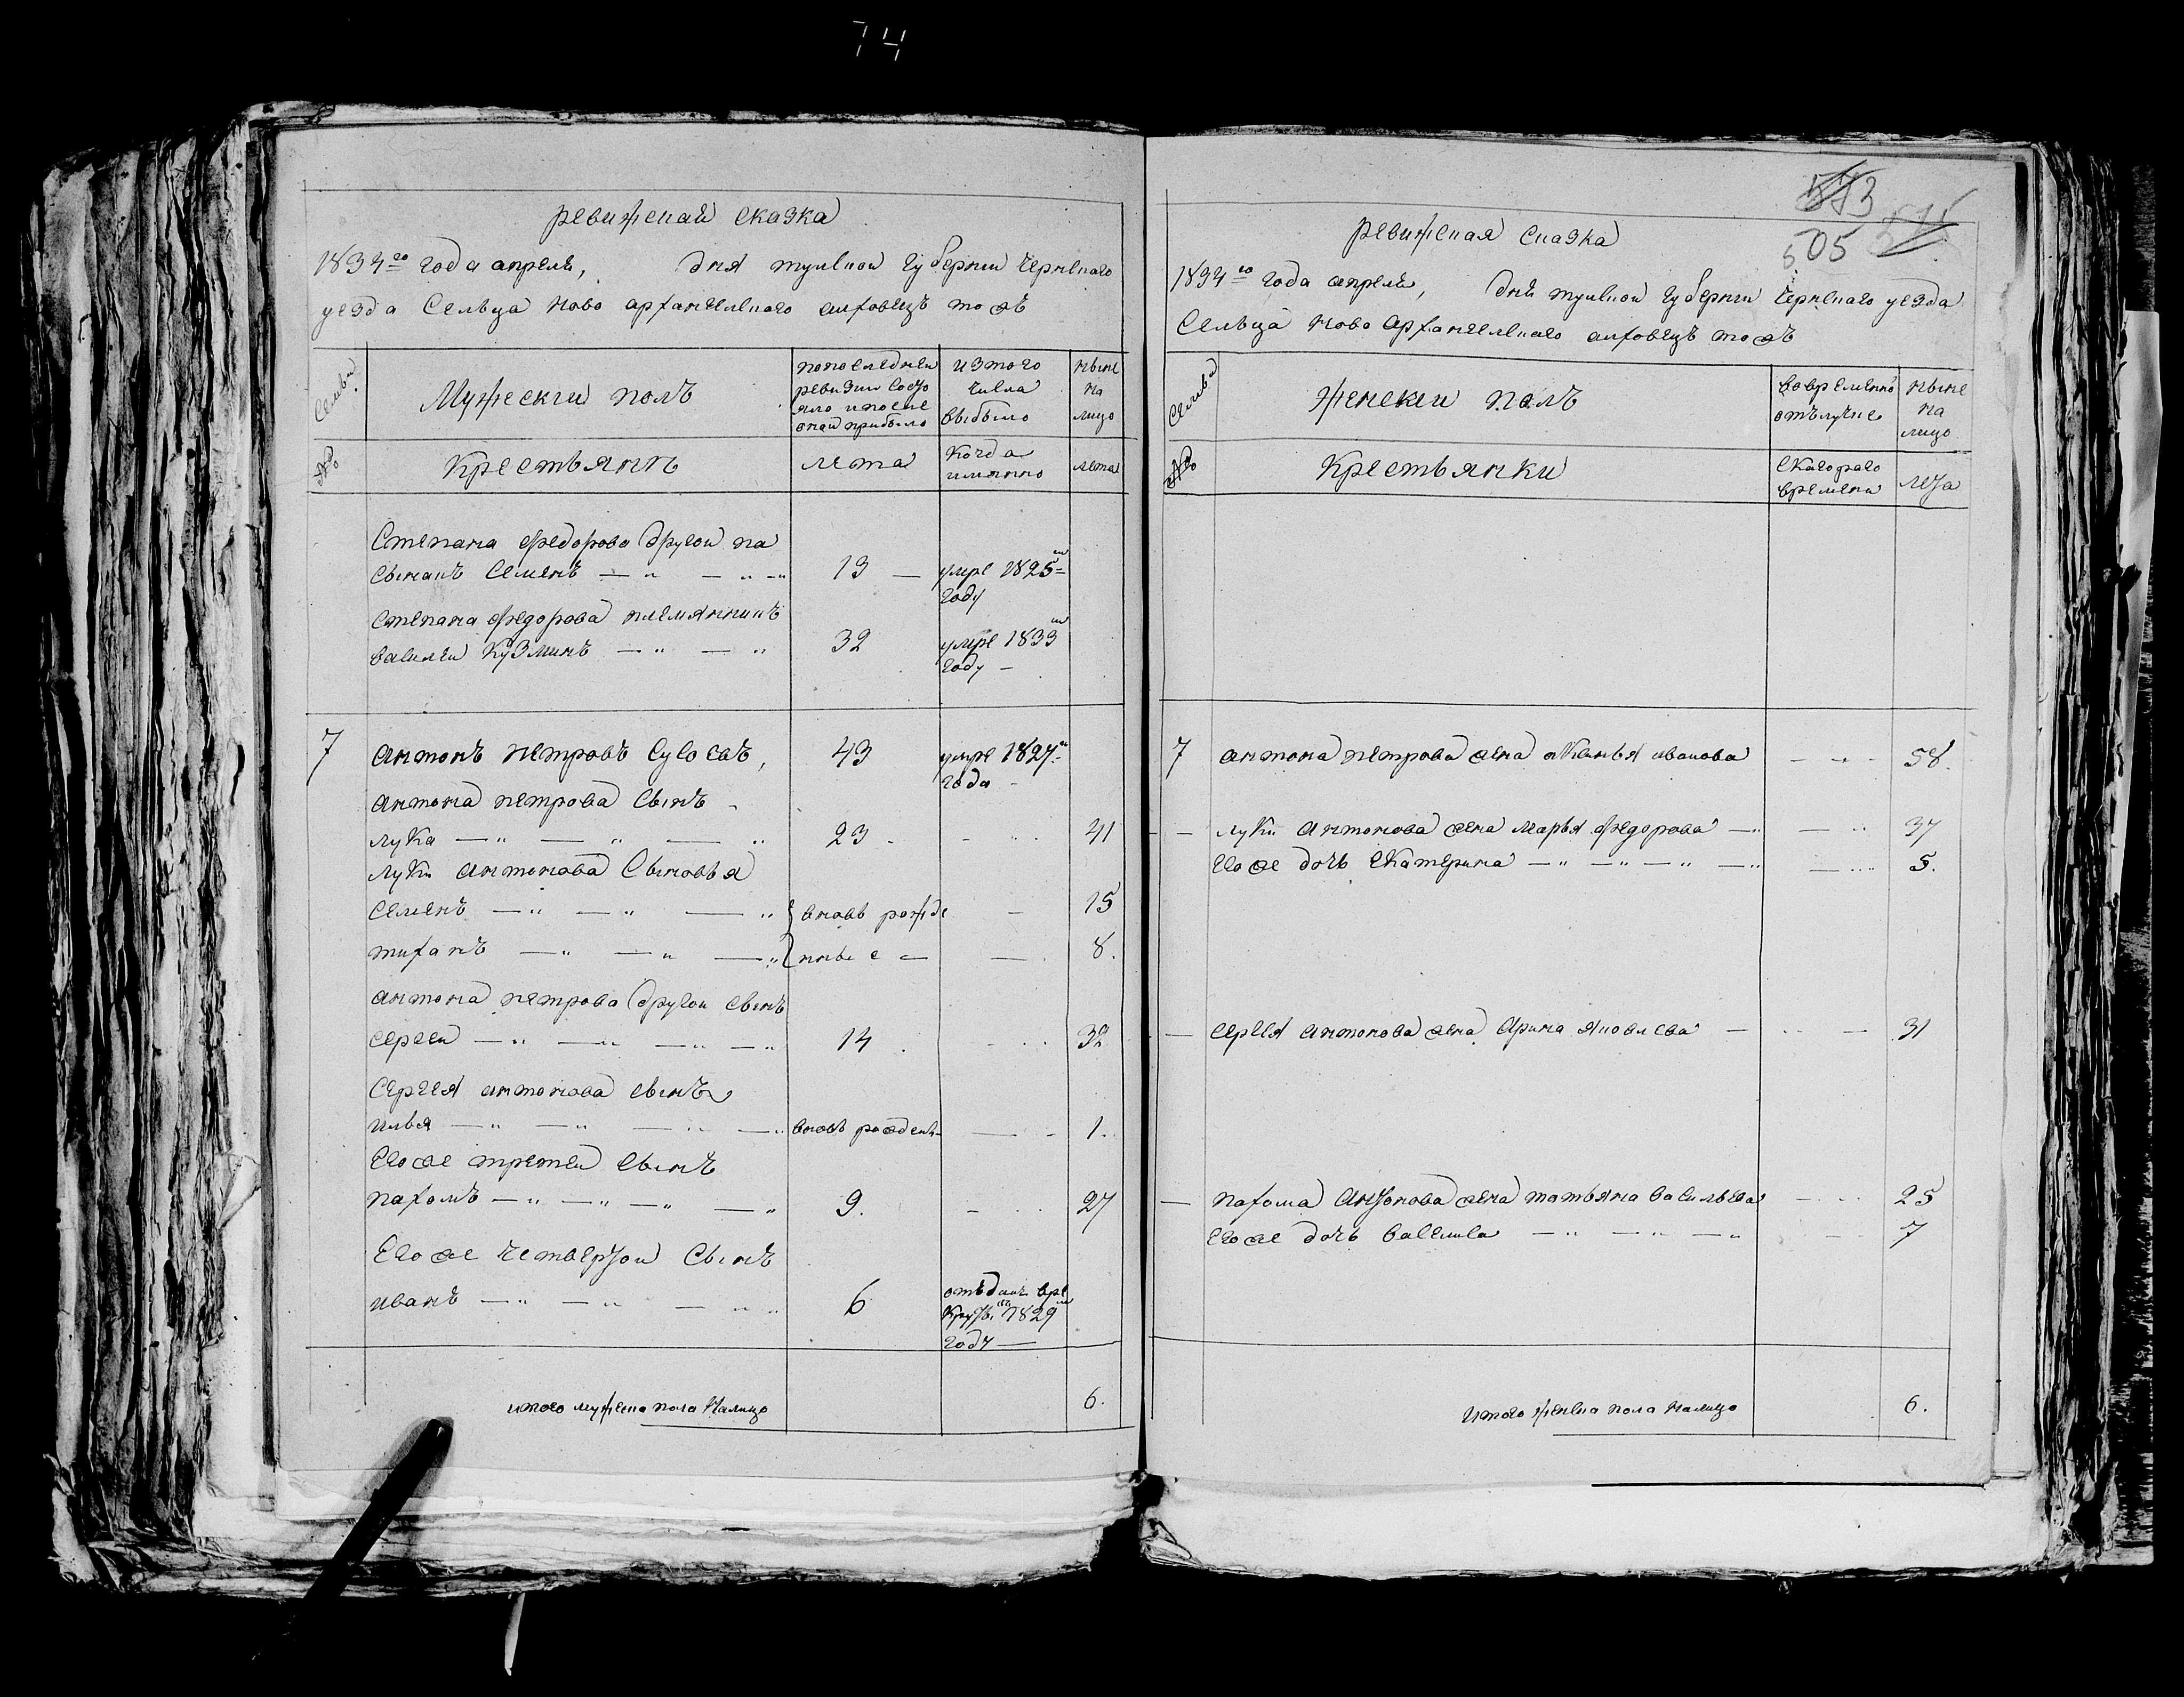 74
ревижской сказка
1834го года апреля, дня тульской губернии чернскаго
уезда Сельца Ново архангелскаго алховецъ тожъ
Семьи
Мужески полъ
попоследней
ревизии состо
яло и после
оной прибыло
изтого
числа
выбыло
ныне
на
лицо
№
Крестьянъ
лета
когда
имянно
лета
Степана федорова другой па
сынокъ Семенъ
13
умре 1825м
году
Степана федорова племянникъ
василеи Кузминъ
32
умре 1833м
году
7
антонъ петровъ
43
умре 1827м
года
антона петрова сынъ
лука
23
41
луки антонова Сыновья
Семенъ
вновь рожде
15
тиханъ
нные
8.
антона петрова другои сынъ
сергеи
14
32
Сергея антонова сынъ
илья
вновь рожденъ
1.
Егоже третеи сынъ
пахомъ
9.
27
Егоже четвертои Сынъ
иванъ
6
отъданъ вре
круты 1829м
году
итого мужска пола Налицо
6.
573
505
515
ревижская сказка
1834го года апреля, дня тульской губернии чернскаго уезда
Сельца Ново Архангелскаго алховецъ тожъ
Семьи
Женскеи полъ
вовременно
отълучке
ныне
на
лицо
№
Крестьянки
скаторого
времени
лета
7
антона петрова жена иванова
58.
луки антонова жена марья федорова
37
Егоже дочь Екатерина
5.
Сергея антонова жена Арина яковлева
31
пахома Антонова жена татьяна васильева
25
Егоже дочь васелиса
7
Итого женска пола налицо
6.